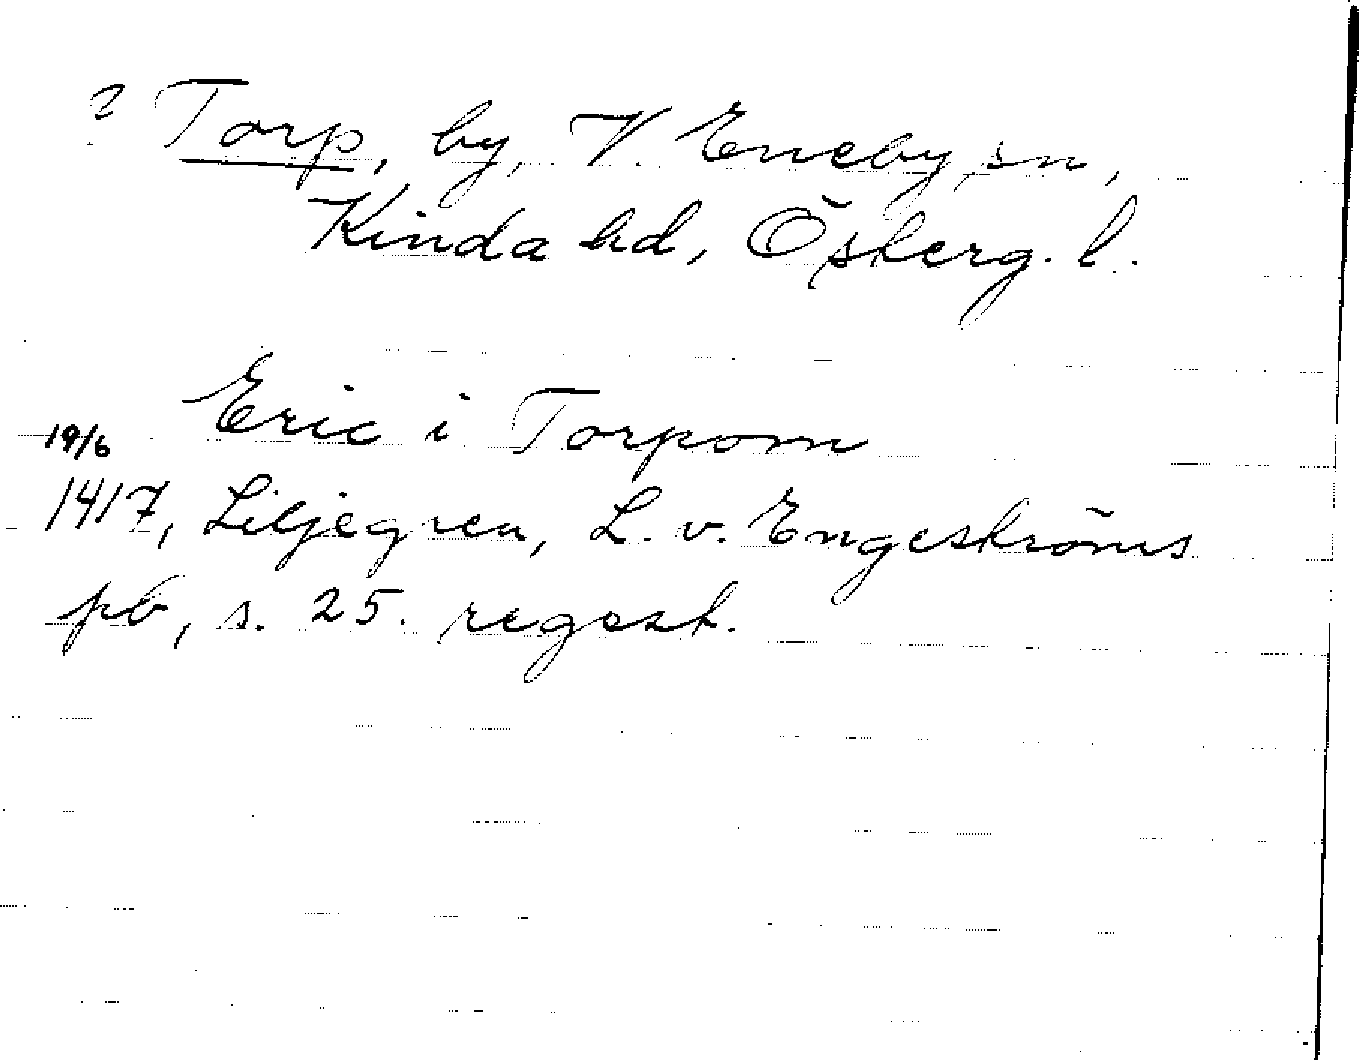 ? Torp, by, V. Eneby sn,
Kinda hd, Österg. l.
Eric i Torpom
19/6
1417, Liljegren, L. v. Engeströms
pb, s. 25. regest.